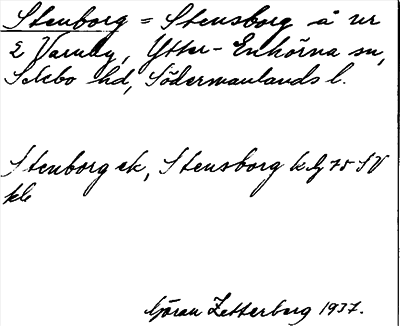 Stenborg = Stensborg å nr
2 Varnby, Ytter-Enhörna sn,
Selebo hd, Södermanlands l.
Stenborg ek, Stensborg k bg 75 SV
Göran Zetterberg 1937.